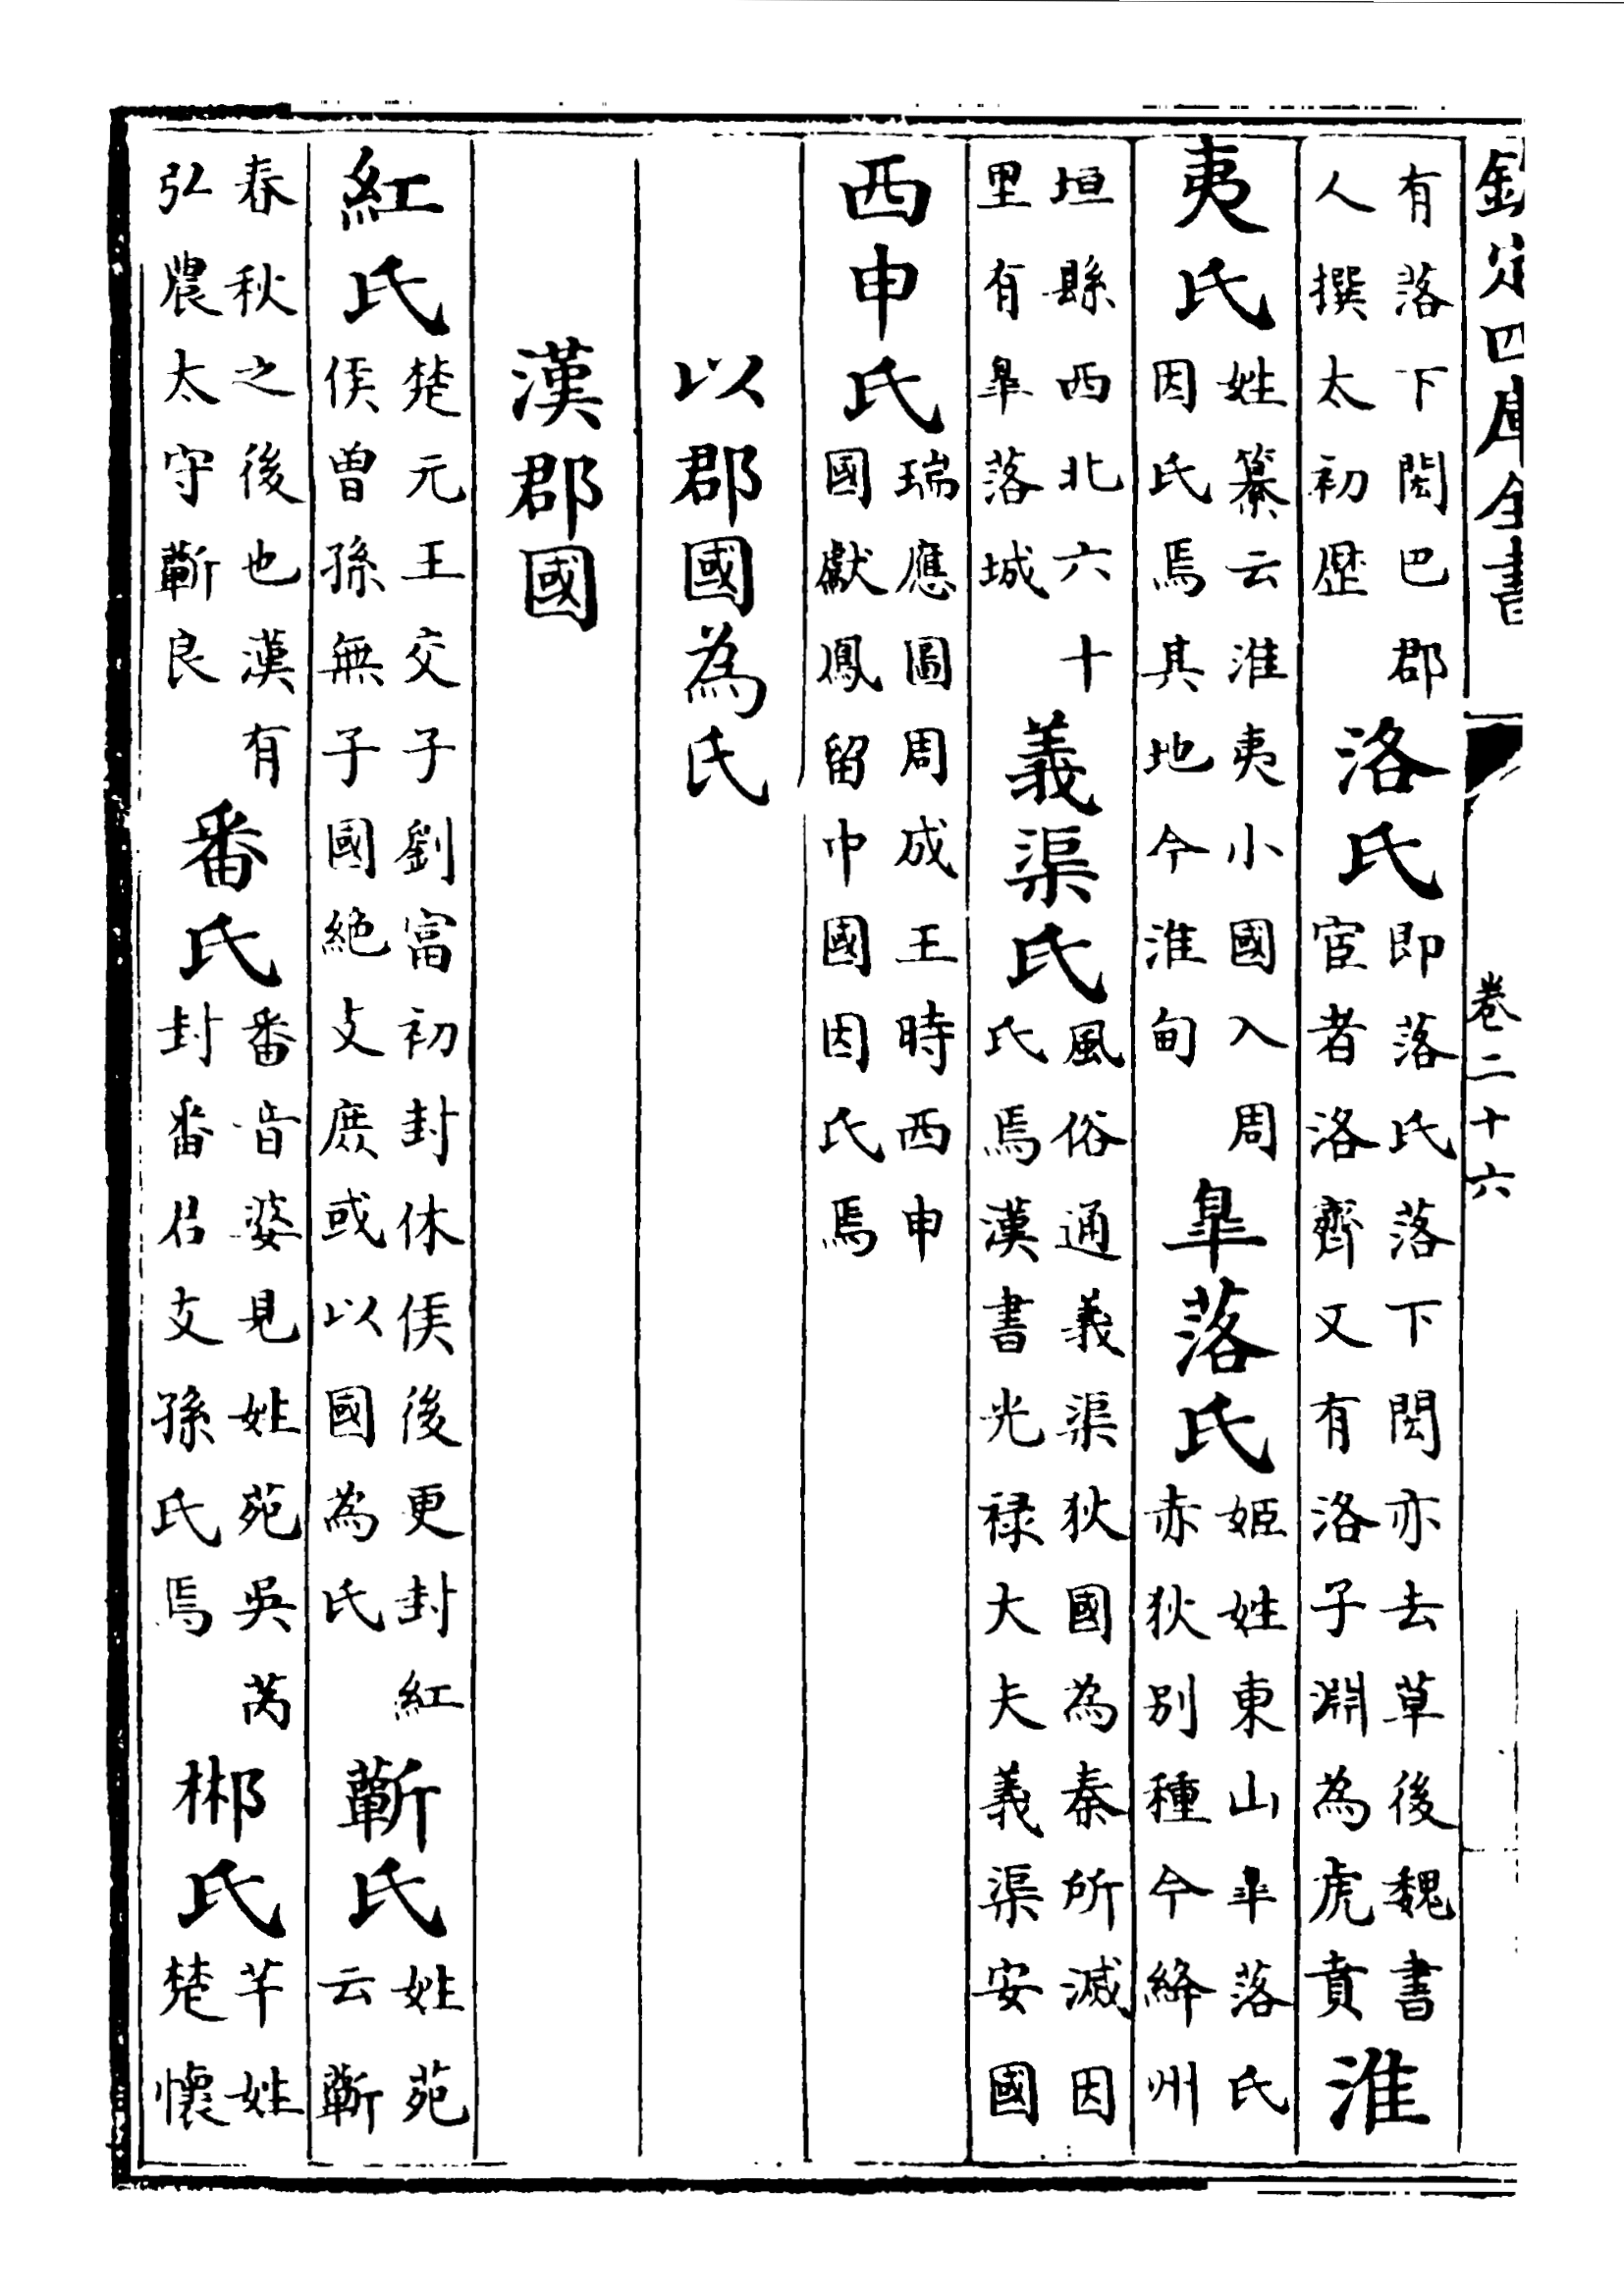 欽定四庫全書 卷二十六
有落下閎巴郡人撰太初歷洛氏即落氏落下閎亦去草後魏書宦者洛齊又有洛子淵為虎賁淮
夷氏姓纂云淮夷小國入周因氏焉其地今淮甸臯落氏姬姓東山臯落氏赤狄別種今絳州
垣縣西北六十里有臯落城義渠氏風俗通義渠狄國為秦所滅因氏焉漢書光禄大夫義渠安國
西申氏瑞應圖周成王時西申國獻鳳留中國因氏焉
以郡國為氏
漢郡國
紅氏楚元王交子劉富初封休侯後更封紅侯曾孫無子國絶支庶或以國為氏蘄氏姓苑云蘄
春秋之後也漢有弘農太守蘄良番氏番音婆見姓苑吳芮封番君支孫氏焉郴氏芊姓楚懷